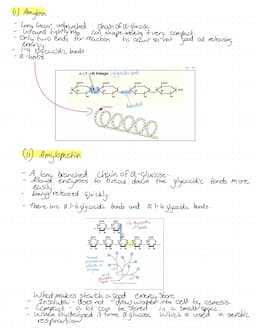 (i) Amylose
- Long linear, unbranched chain of α-glucose
- Wound tightly into coil shape making it very compact
- Only two ends for reaction to occur so not good at releasing
energy
- 1-4 glycosidic bonds
- α-helix
α-(1→4) linkage
(ii) Amylopectin
- A long branched chain of α-glucose
- Allows enzymes to break down the glycosidic bonds more
easily
- Energy released quickly
- There are α 1-6 glycosidic bonds and α 1-4 glycosidic bonds
What makes starch a good energy store
- Insoluble - does not draw water into cell by osmosis
- Compact - a lot can be stored in a small space
- When hydrolysed it forms α glucose which is used in aerobic
respiration